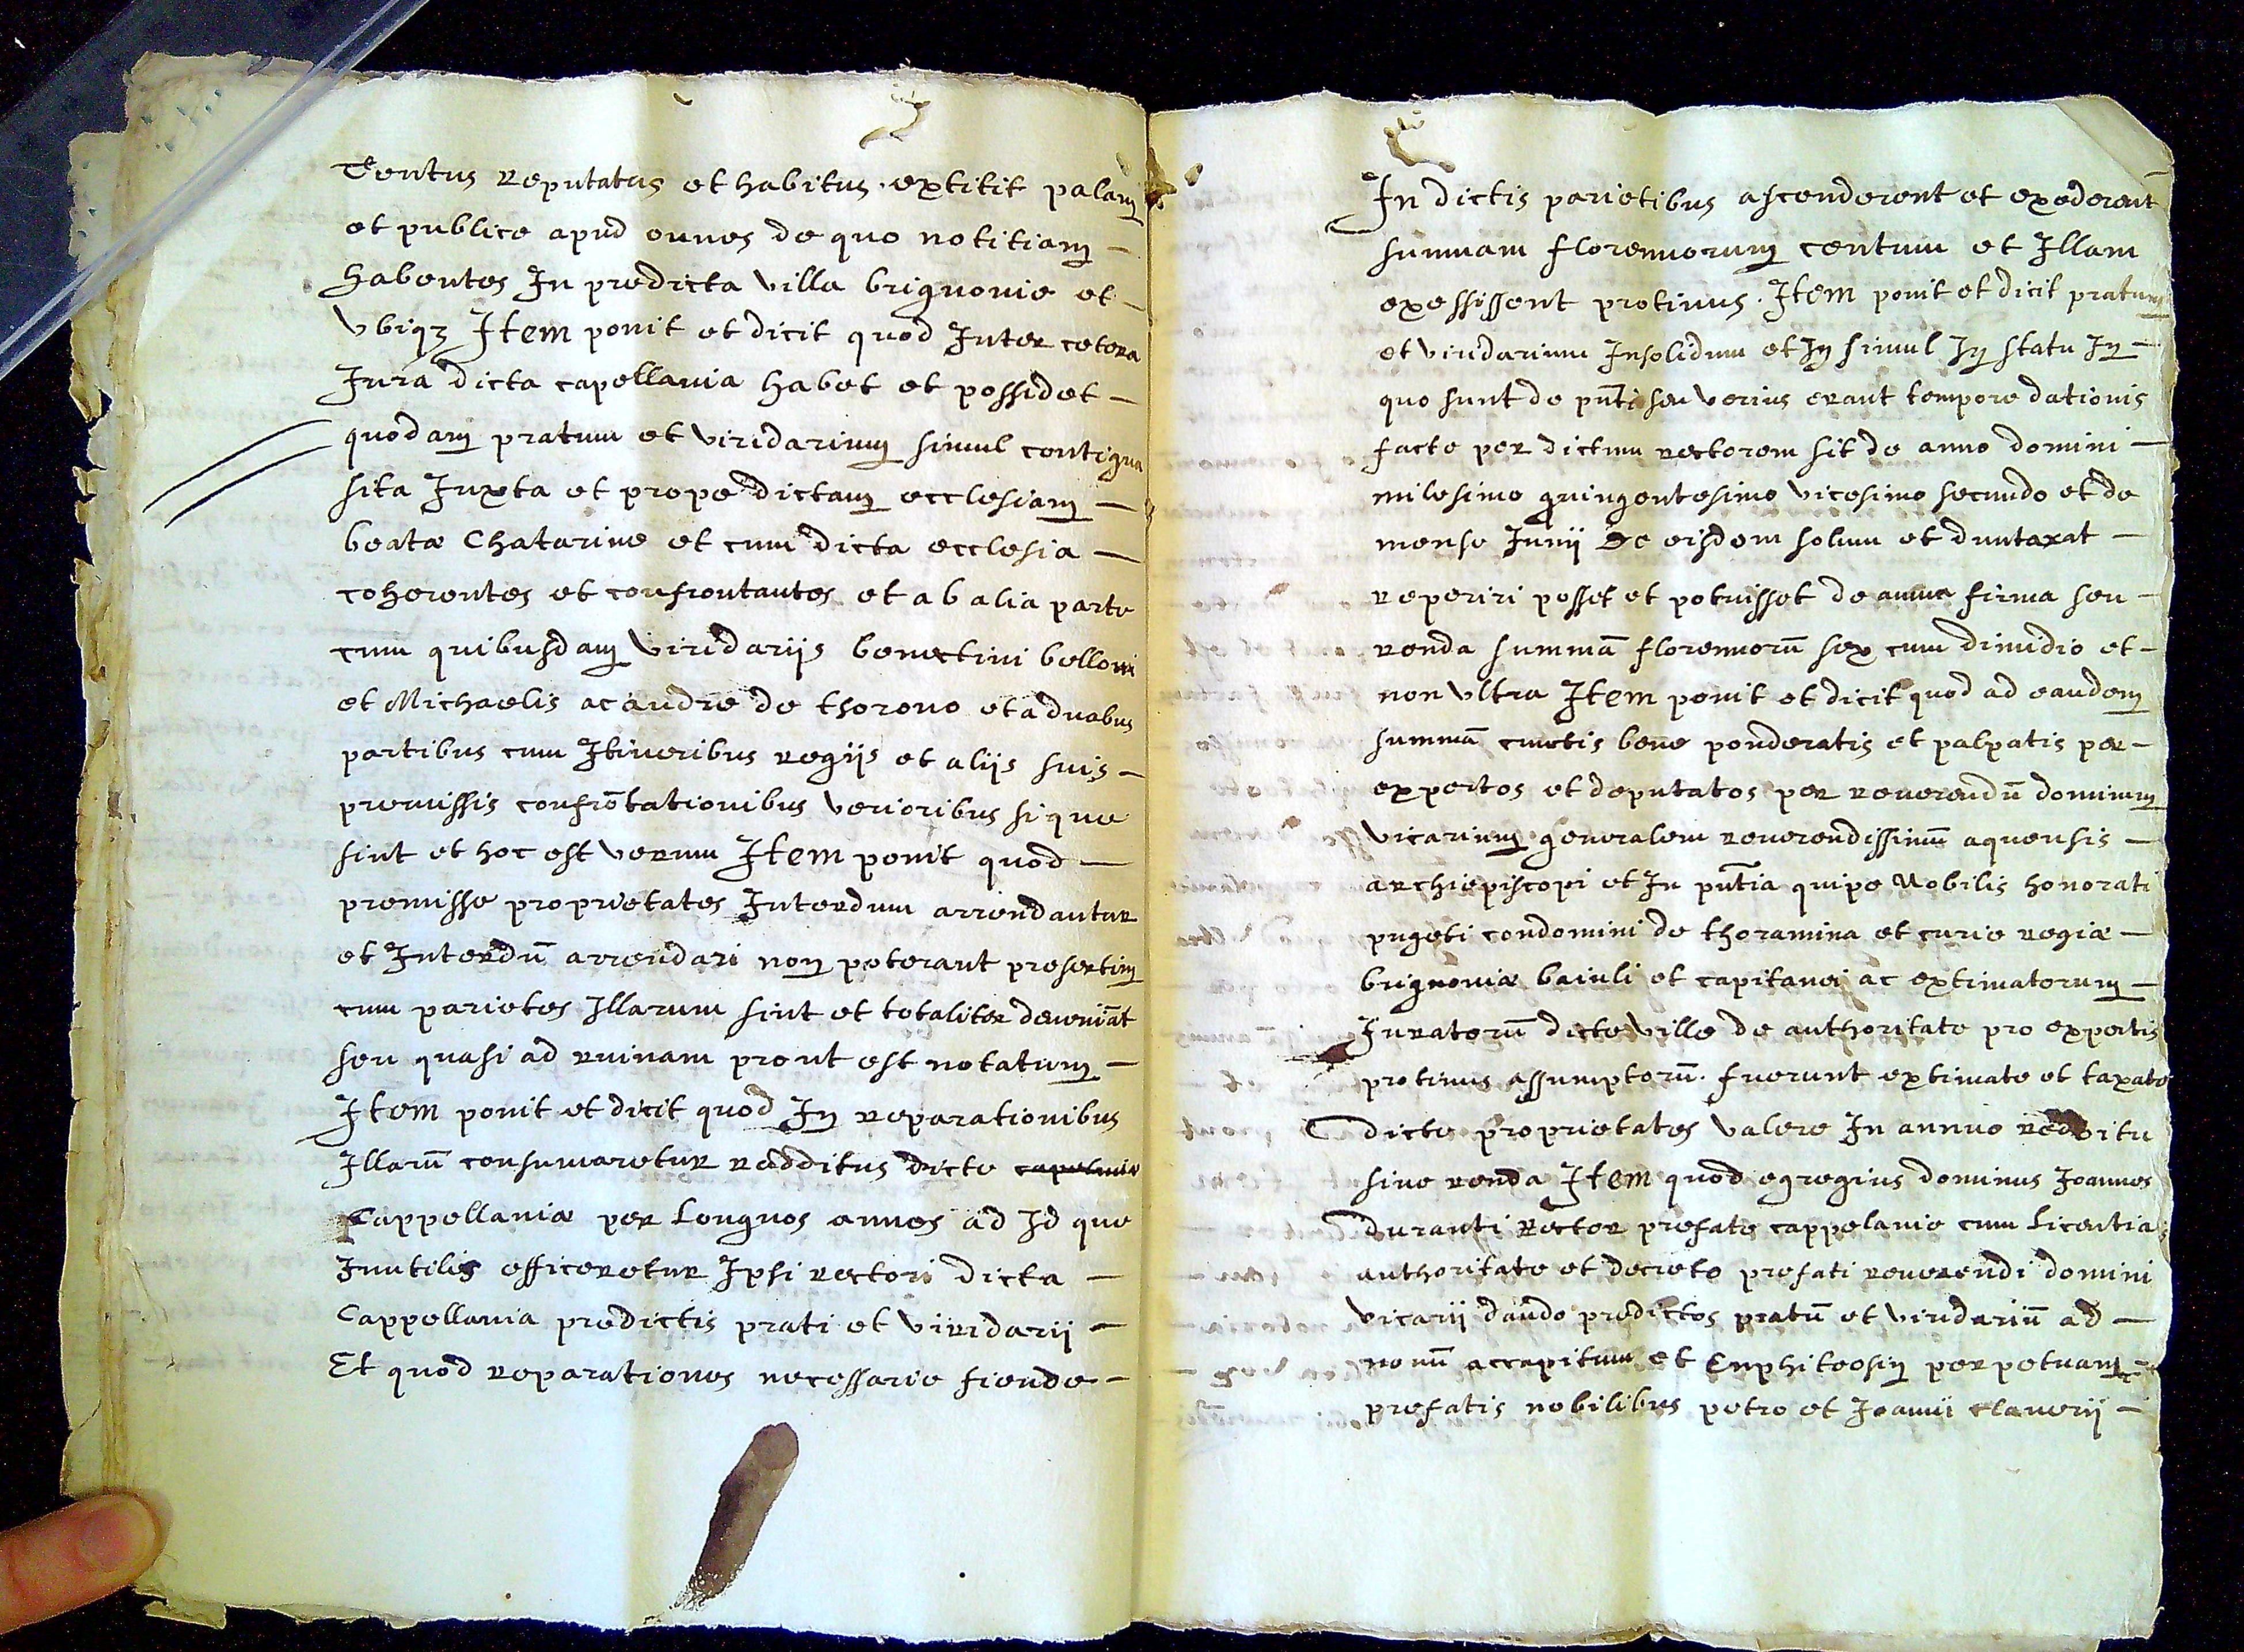 Tentus reputatus et habitus. extitit palam
et publice apud omnes de quo notitiam -
habentes In predicta villa brignonie et -
vbiqz Item ponit et dicit quod Inter cetera
Jura dicta capellania habet et possidet -
quodam pratum et viridarium simul contigua
sita Juxta et prope dictam ecclesiam -
beatæ Chatarine et cum dicta ecclesia -
coherentes et confrontantes et ab alia parte
cum quibusdam viridariis benectini belloni
et Michaelis ac andree de thorono et a duabus
partibus cum Itineribus regiis et aliis suis -
premissis confrōtationibus verioribus si que
sint et hoc est verum Item ponit quod -
premisse proprietates Interdum arrendantur
et Interdū arrendari non poterant presertim
cum parietes Illarum sint et totaliter deueniāt
seu quasi ad ruinam prout est notatum -
Item ponit et dicit quod In reparationibus
Illarū consumaretur redditus dicte capelanie
Cappellaniæ per Longuos annos ad Id que
Inutilis efficeretur Ipsi rectori dicta -
Cappellania predictis prati et viridarij -
Et quod reparationes necessarie fiende -
In dictis parietibus ascenderent et exederent
summam florennorum centum et Illam
exessissent protinus. Item ponit et dicit pratum
et viridarium Insolidum et In simul In statu In -
quo sunt de pn̄ti seu verius erant tempore dationis
facte per dictum rectorem sit de anno domini -
milesimo quingentesimo vicesimo secundo et de
mense Junij De eisdem solum et duntaxat -
reperiri posset et potuisset de annua firma seu -
renda summā florennorū sex cum dimidio et -
non vltra Item ponit et dicit quod ad eandem
summā cunctis bene ponderatis et palpatis per -
expertos et deputatos per reuerendū dominum
vicarium generalem reuerendissimū aquensis -
archiepiscopi et In pn̄tia quipe Nobilis honorati
pugeti condomini de thoramina et curie regiæ -
brignoniæ baiuli et capitanei ac extimatorum -
Juratorū dicte ville de authoritate pro expertis
protinus assumptorū. fuerunt extimate et taxate
dicte proprietates valere In annuo redditu
siue renda Item quod egregius dominus Joannes
duranti Rector prefate cappelanie cum Licentia
authoritate et decreto prefati reuerendi domini
vicarii dando predictos pratū et viridariū ad -
nouū accapitum et Enphiteosim perpetuam -
prefatis nobilibus petro et Joanni clauerij -